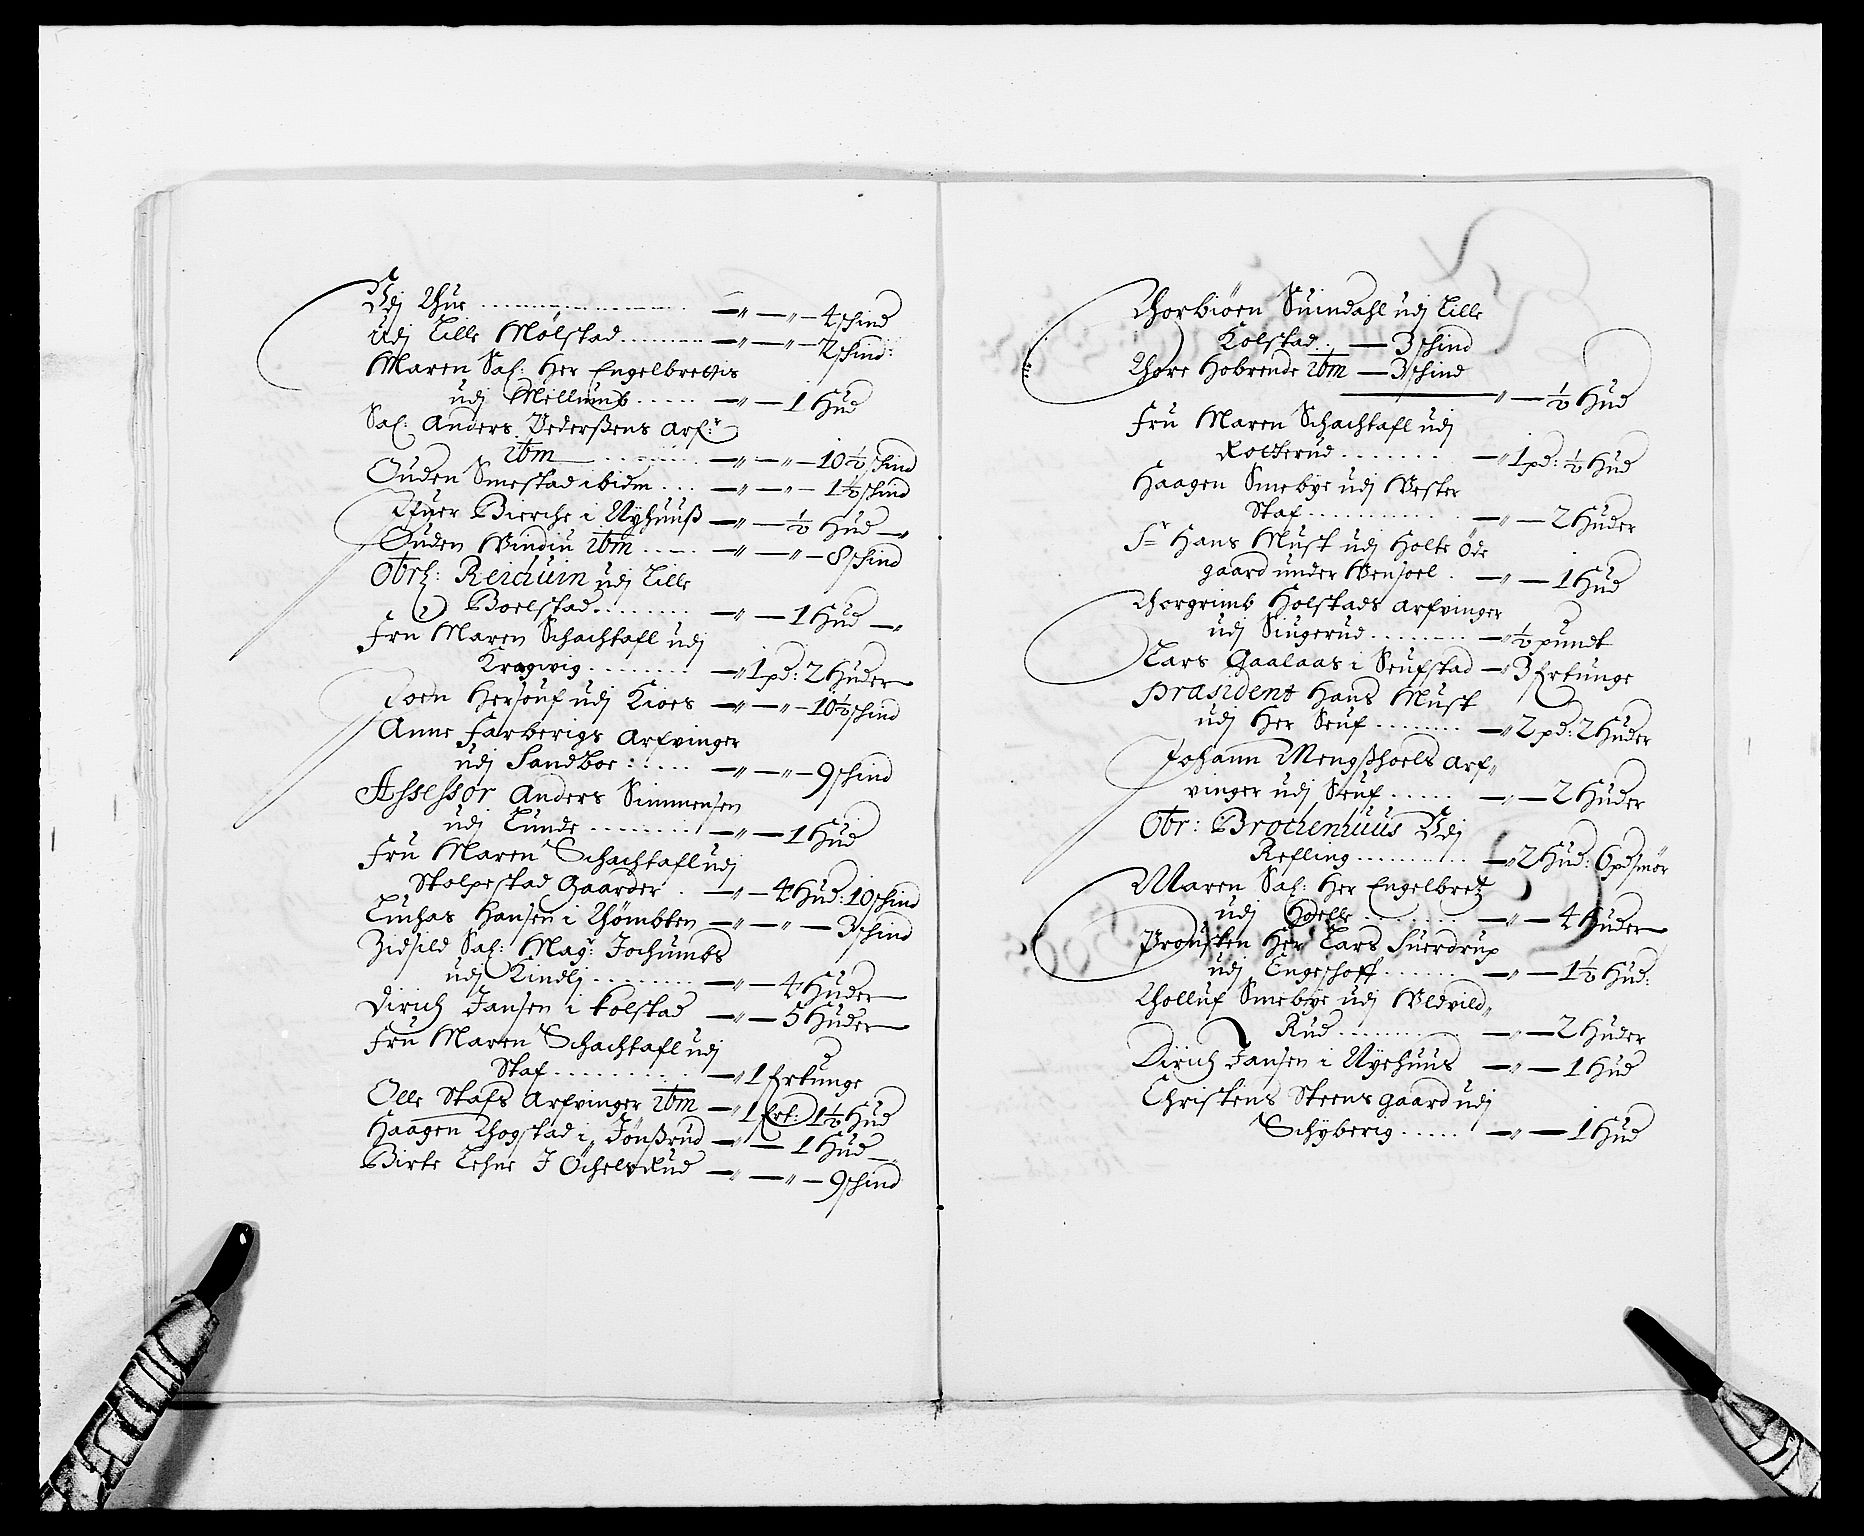 Udj Thue ........ — " — " — 4 skind
udj Lille Mølstad ........ — " — " — 2 skind:
Maren Sal: Her Engelbrettis
udj Mellumb ..... — " — 1 Hud
Sal: Anders Pederßens Arf:r
ibm ........ — " — " — 10½ skind
Ouden Smestad ibidm ... — " — " — 1½ skind
Ifuer Bierche i Nyhuuß — " — ½ Hud — "
Ouden Windju ibm ..... — " — " — 8 skind
Obrl: Reichuin udj Lille
Boelstad ........ — " — 1 Hud — "
Fru Maren Schachtafl udj
Kragwig ........ — " 1 pd: 2 Huder
Joen Hersoug udj Kioes — " — " — 10½ skind
Anne Farberigs Arfvinger
udj Sandboe : .... — " — " — 9 skind
Assessor Anders Simmensen
udj Lunde ........ — " — 1 Hud
Fru Maren Schachtafl udj
Skolpestad Gaarder . — " — 4 Hud: 10 skind
Luchas Hansen i Thømbten — " — " — 3 skind
Zidsild Sal: Magr: Jochumbs
udj Kindlj ........ — " — 4 Huder
Dirich Jansen i Kolstad — " — 5 Huder
Fru Maren Schachtafl udj
Skaf ........ — " 1 Fierkunge
Olle Skafs Arfvinger ibm — " 1 Ferk: 1½ Hud
Haagen Thogstad i, Jønßrud — " — 1 Hud — "
Birte Lehne I Ochelsrud — " — " — 9 skind
Thorbiøen Suindahl udj Lille
Kolstad .. — 3 skind
Thore Hobrende ibm — 3 skind
" — ½ Hud
Fru Maren Schachtafl udj
Rotterud ........ — " 1 pd: ½ Hud
Haagen Smebye udj Vester
Skaf ........ — " — 2 Huder
Sr Hans Must udj Holte Øde
gaard under Wensoel . — " — 1 Hud
Thorgrimb Holstads Arfvinger
udj Singerud ........ — " ½ pundt
Lars Gaalaas i Seufstad — " 3 Ferkunge
Præsident Hans Must
udj Her Seuf ........ — " 2 pd: 2 Huder
Johann Mengßhoels Arf„
vinger udj Seuf ..... — " — 2 Huder
Obr: Brochenhuus Udj
Refling ........ — " 2 Hud: 6 pd smør
Maren Sal: Her Engelbretz
udj Hoelle ........ — " — 4 Huder
Prousten Her Lars Suerdrup
udj Engeshoff ...... — " — 1½ Hud:
Tholluf Smebye udj Weldvild„
Rud ........ — " — 2 Huder
Dirich Jansen i Nyehuus — " — 1 Hud
Christens Steens gaard udj
Schyberig ..... — " — 1 Hud